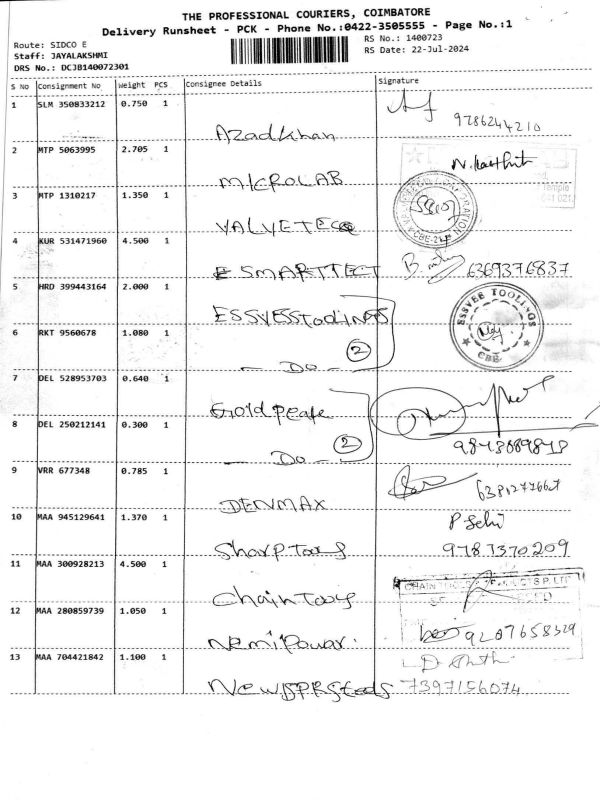 THE PROFESSIONAL COURIERS, COIMBATORE
Delivery Runsheet - PCK - Phone No.:0422-3505555 - Page No.:1
Route: SIDCO E
RS No.: 1400723
Staff: JAYALAKSHMI
RS Date: 22-Jul-2024
DRS No.: DCJB140072301
S No Consignment No Weight PCS Consignee Details Signature
1 SLM 350833212 0.750 1
Azadkhan 9786244210
2 MTP 5063995 2.705 1
MICROLAB
3 MTP 1310217 1.350 1
VALVETEC
4 KUR 531471960 4.500 1
E SMARTTECT 6369376837
5 HRD 399443164 2.000 1
ESSVEE Toolings
ESSVEE TOOLINGS
CBE
6 RKT 9560678 1.080 1
- Do - 2
7 DEL 528953703 0.640 1
Goldpeafe
8 DEL 250212141 0.300 1
- Do - 2
9 VRR 677348 0.785 1
DENMAX
10 MAA 945129641 1.370 1
Sharp Tools 9787370209
11 MAA 300928213 4.500 1
Chain Tools
12 MAA 280859739 1.050 1
Nemi Power. 9207658329
13 MAA 704421842 1.100 1
7397156074